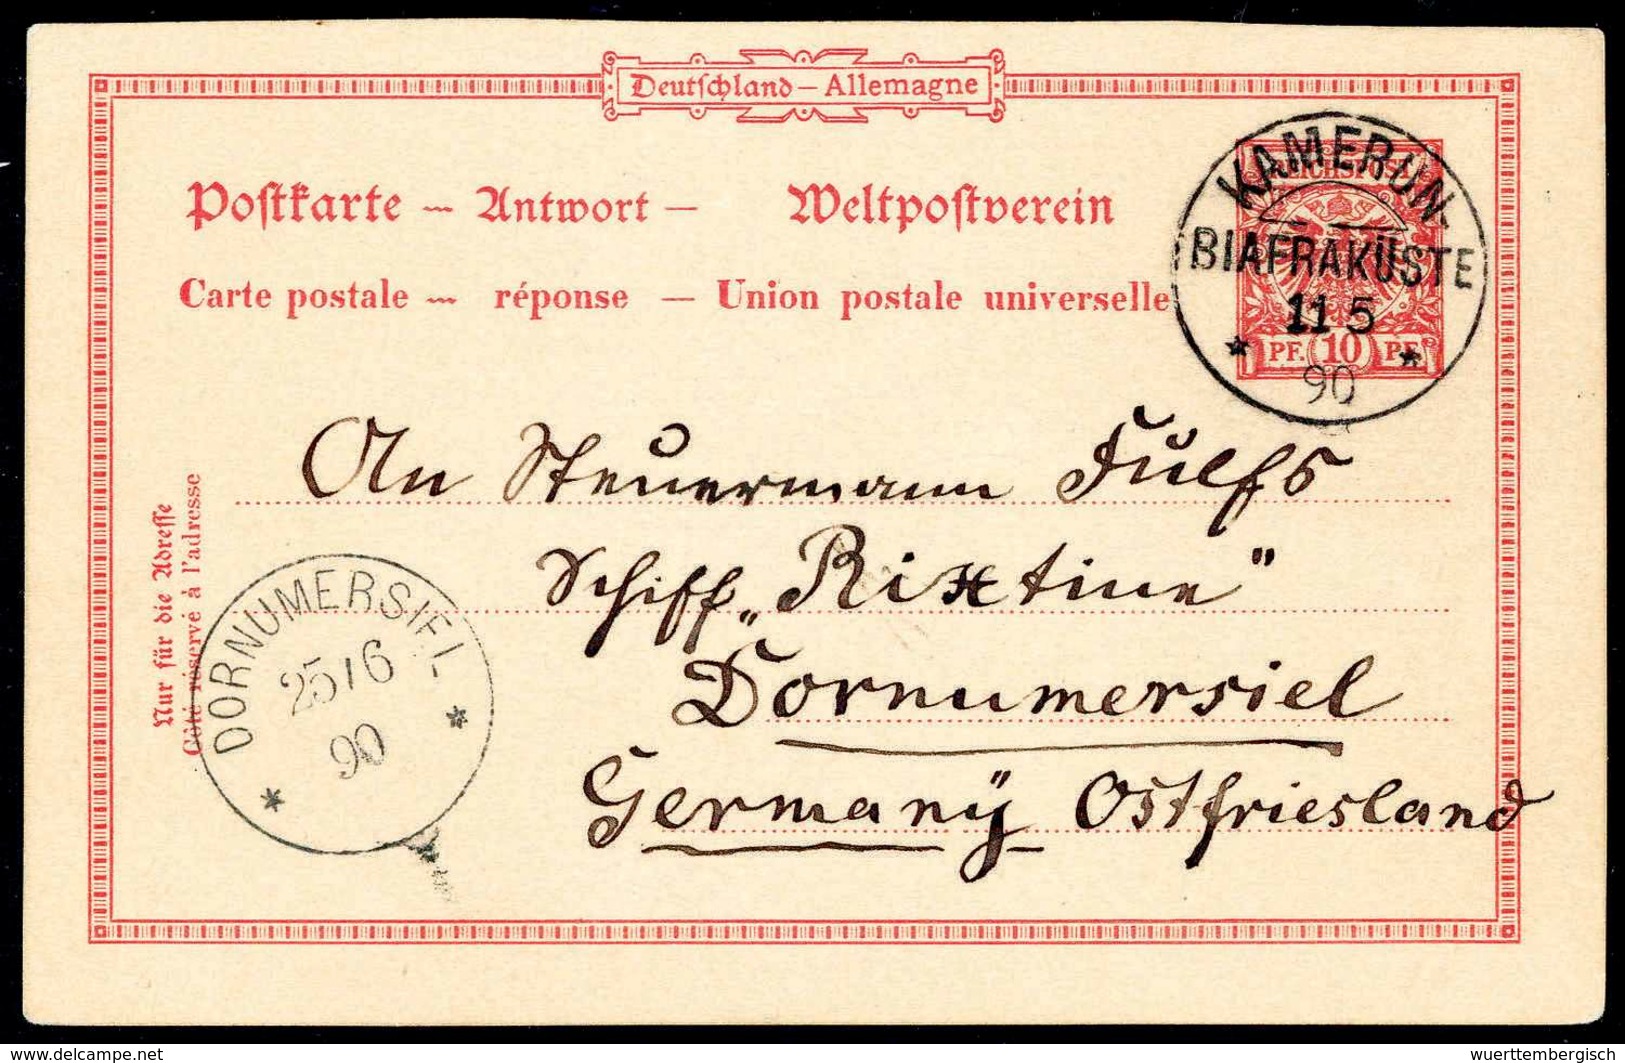 Deutschland – Allemagne
Postkarte – Antwort – Weltpostverein
Carte postale – réponse – Union postale universelle
REICHSPOST
PF. 10 PF.
KAMERUN-
BIAFRAKÜSTE
11 5
90
An Steuermann Fulfs
Schiff „Rixtine"
Dornumersiel
Germany Ostfriesland
Nur für die Adresse
Côté réservé à l'adresse
DORNUMERSIEL
25/6
90
www.delcampe.net
wuerttembergisch